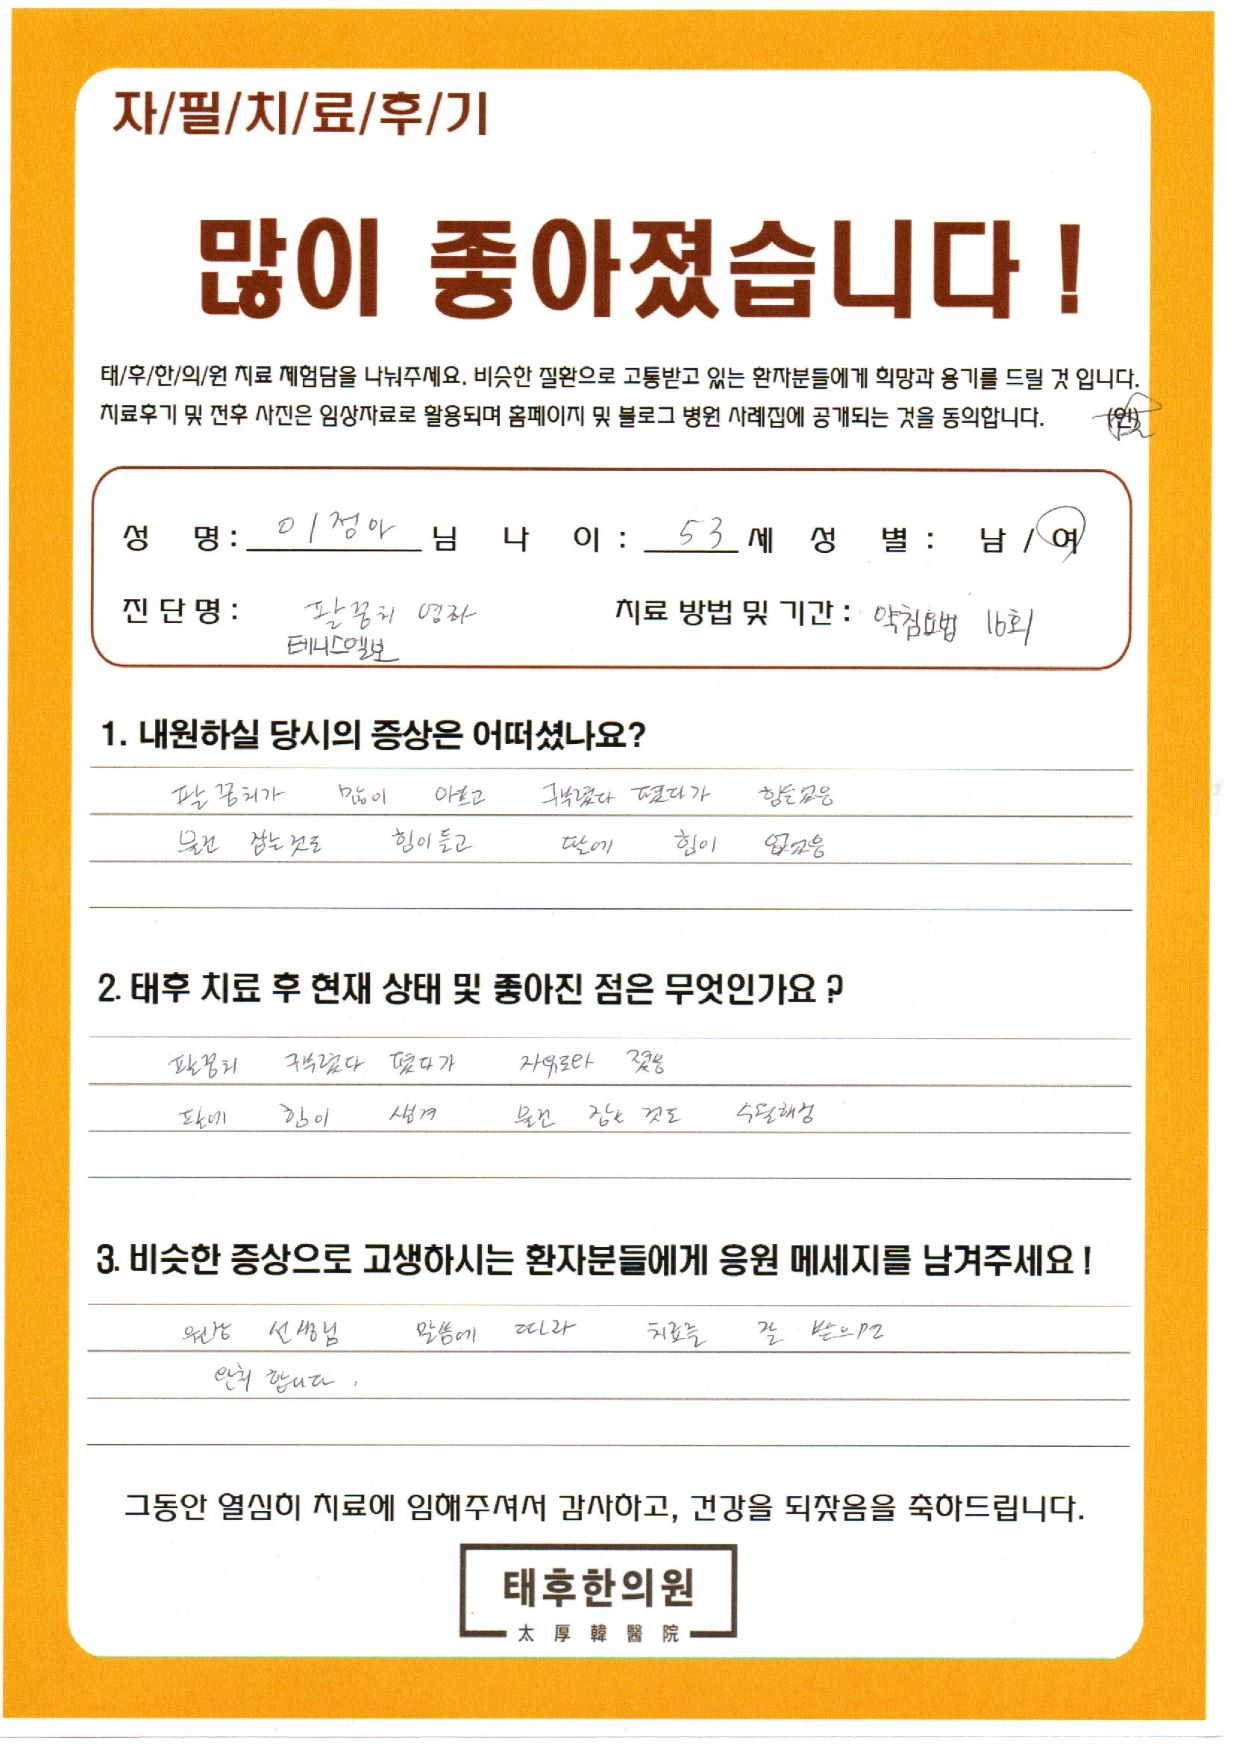 자/필/치/료/후/기
많이 좋아졌습니다!
태/후/한/의/원 치료 체험담을 나눠주세요. 비슷한 질환으로 고통받고 있는 환자분들에게 희망과 용기를 드릴 것 입니다.
치료후기 및 전후 사진은 임상자료로 활용되며 홈페이지 및 블로그 병원 사례집에 공개되는 것을 동의합니다. (인)
성 명 : 이정아 님 나 이 : 53 세 성 별 : 남 / 여
진 단 명 : 팔꿈치 염좌 치료 방법 및 기간 : 약침요법 16회
테니스엘보
1. 내원하실 당시의 증상은 어떠셨나요?
팔꿈치가 많이 아프고 구부렸다 폈다가 힘들었음
물건 잡는것도 힘이들고 팔에 힘이 없었음
2. 태후 치료 후 현재 상태 및 좋아진 점은 무엇인가요 ?
팔꿈치 구부렸다 폈다가 자유로와 졌음
팔에 힘이 생겨 물건 잡는 것도 수월해짐
3. 비슷한 증상으로 고생하시는 환자분들에게 응원 메세지를 남겨주세요 !
원장 선생님 말씀에 따라 치료를 잘 받으면
완치 합니다.
그동안 열심히 치료에 임해주셔서 감사하고, 건강을 되찾음을 축하드립니다.
태후한의원
太厚韓醫院